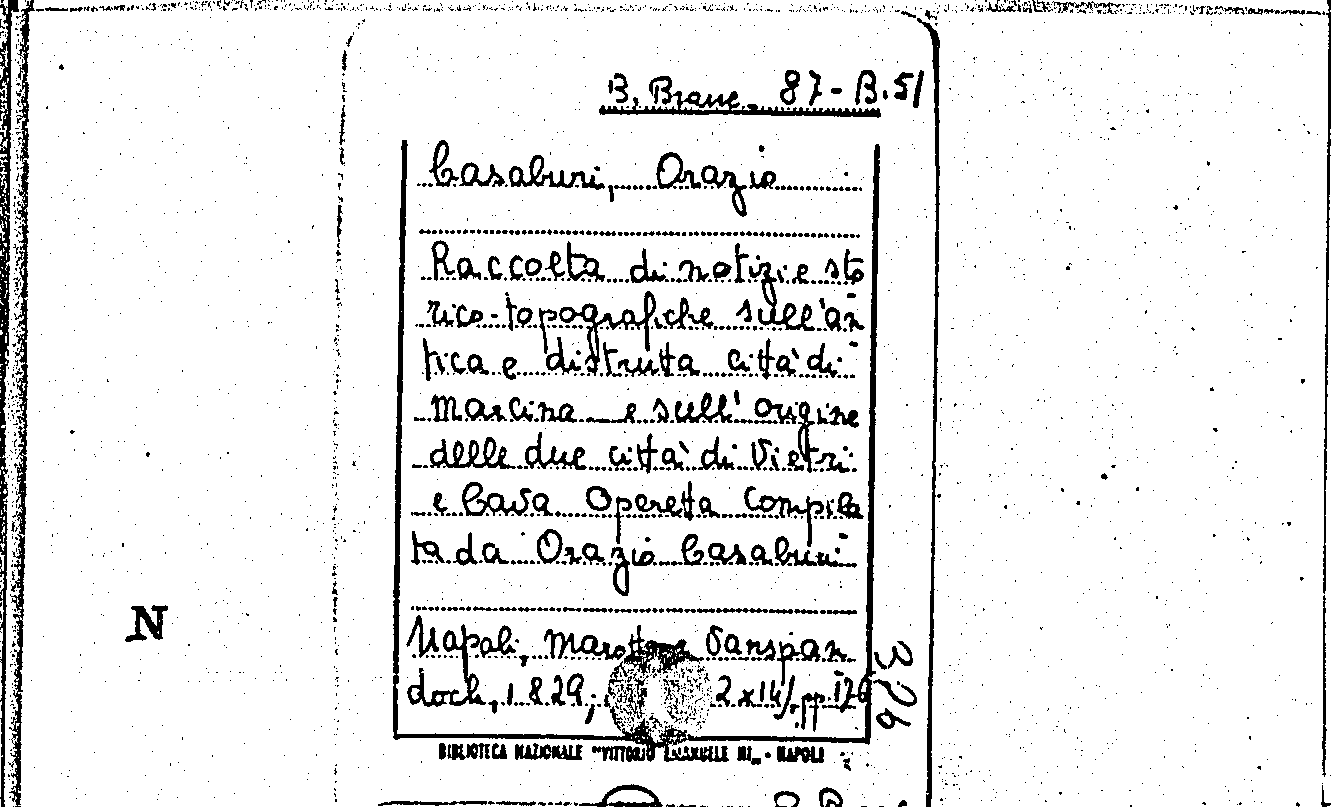 B. Branc. 87-B.51
Casaburi, Orazio
Raccolta di notizie sto
rico-topografiche sull'an
tica e distrutta città di
Marcina e sull'origine
delle due città di Vietri
e Cava Operetta Compila
ta da Orazio Casaburi
N
Napoli, Marotta e Vanspan
doch, 1829; 2x14/ pp. 176
BIBLIOTECA NAZIONALE "VITTORIO EMANUELE III" - NAPOLI